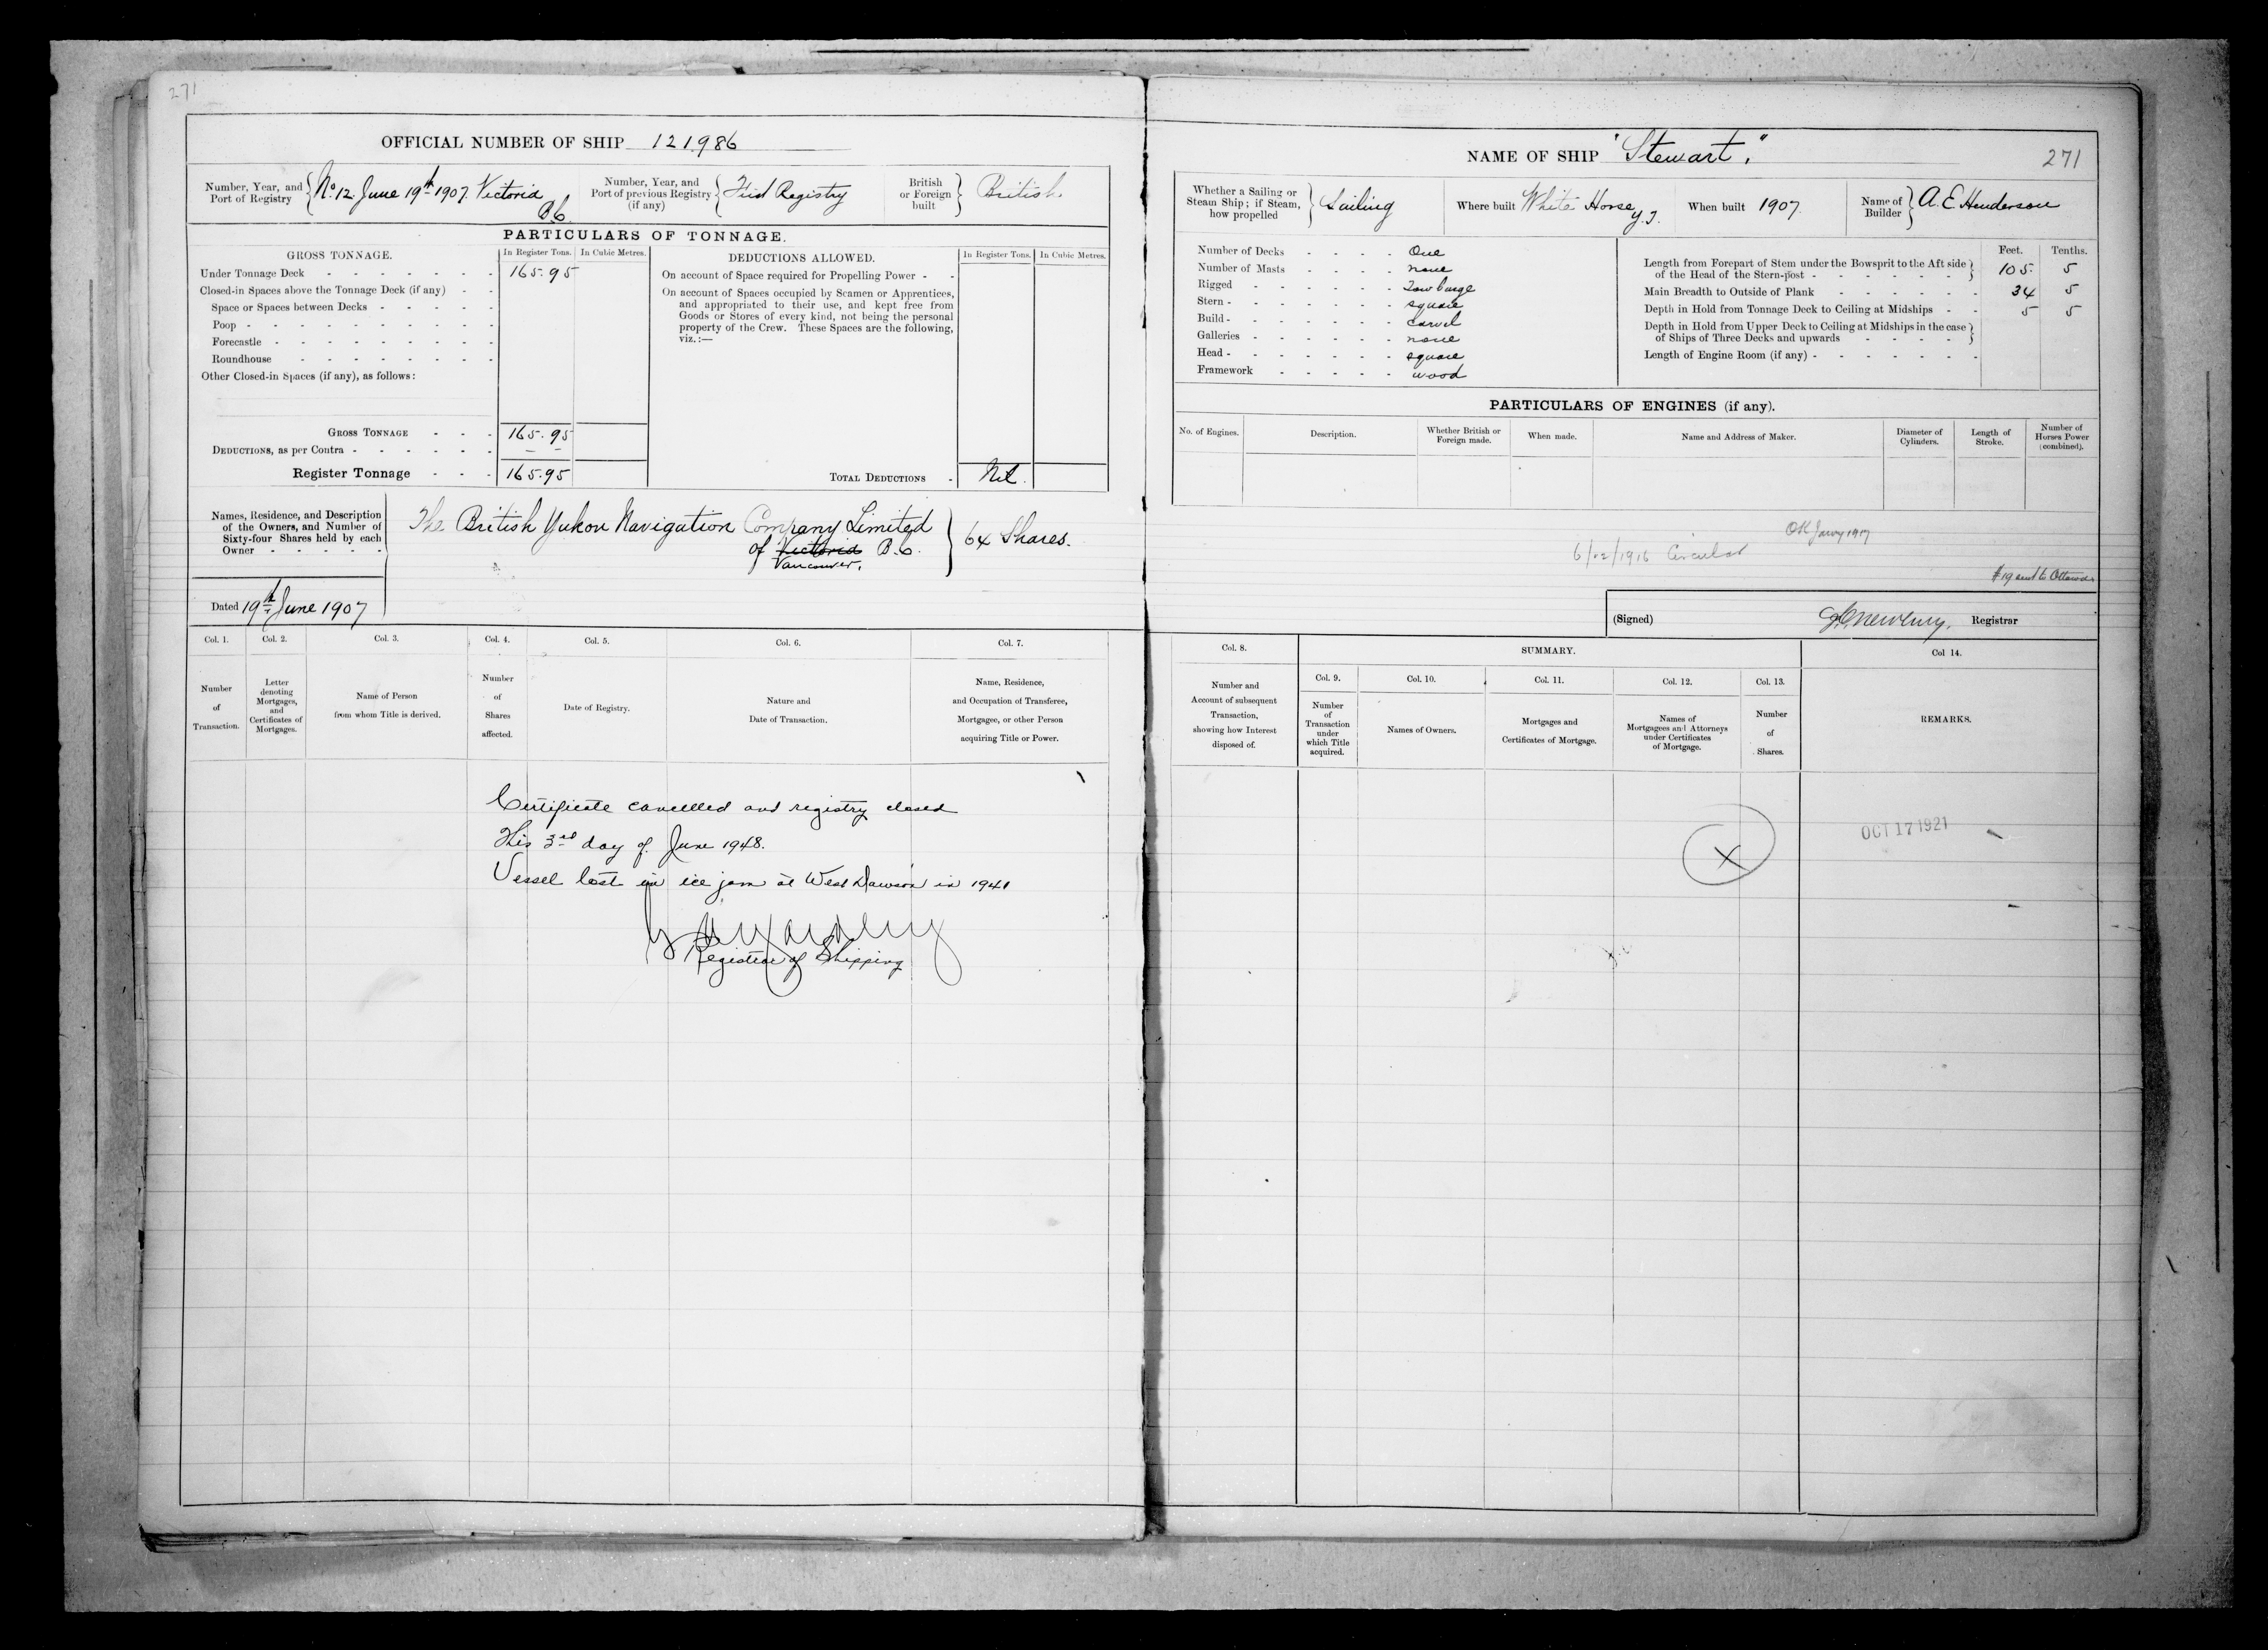 271
OFFICIAL NUMBER OF SHIP 121986
Number, Year, and Port of Registry } No 12. June 19th 1907. Victoria B.C.
Number, Year, and Port of previous Registry (if any) } First Registry
British or Foreign built } British
PARTICULARS OF TONNAGE.
GROSS TONNAGE. In Register Tons. In Cubic Metres.
Under Tonnage Deck - 165.95
Closed-in Spaces above the Tonnage Deck (if any) -
Space or Spaces between Decks -
Poop -
Forecastle -
Roundhouse -
Other Closed-in Spaces (if any), as follows:
GROSS TONNAGE - 165.95
DEDUCTIONS, as per Contra -
Register Tonnage - 165.95
DEDUCTIONS ALLOWED. In Register Tons. In Cubic Metres.
On account of Space required for Propelling Power -
On account of Spaces occupied by Seamen or Apprentices,
and appropriated to their use, and kept free from
Goods or Stores of every kind, not being the personal
property of the Crew. These Spaces are the following,
viz.:—
TOTAL DEDUCTIONS - Nil.
Names, Residence, and Description
of the Owners, and Number of
Sixty-four Shares held by each
Owner -
The British Yukon Navigation Company Limited
of Victoria B.C. } 64 Shares.
Vancouver.
Dated 19th June 1907
Col. 1. Col. 2. Col. 3. Col. 4. Col. 5. Col. 6. Col. 7.
Number of Transaction.
Letter denoting Mortgages, and Certificates of Mortgages.
Name of Person from whom Title is derived.
Number of Shares affected.
Date of Registry.
Nature and Date of Transaction.
Name, Residence, and Occupation of Transferee, Mortgagee, or other Person acquiring Title or Power.
Certificate cancelled and registry closed
This 3rd day of June 1948.
Vessel lost in ice jam at West Dawson in 1941
Registrar of Shipping
NAME OF SHIP "Stewart."
271
Whether a Sailing or Steam Ship; if Steam, how propelled } Sailing
Where built White Horse Y.T.
When built 1907.
Name of Builder } A. E. Henderson
Number of Decks - One
Number of Masts - none
Rigged - Tow barge
Stern - square
Build - carvel
Galleries - none
Head - square
Framework - wood
Feet. Tenths.
Length from Forepart of Stem under the Bowsprit to the Aft side
of the Head of the Stern-post - } 105. 5
Main Breadth to Outside of Plank - 34 5
Depth in Hold from Tonnage Deck to Ceiling at Midships - 5 5
Depth in Hold from Upper Deck to Ceiling at Midships in the case
of Ships of Three Decks and upwards - }
Length of Engine Room (if any) -
PARTICULARS OF ENGINES (if any).
No. of Engines.
Description.
Whether British or Foreign made.
When made.
Name and Address of Maker.
Diameter of Cylinders.
Length of Stroke.
Number of Horses Power (combined).
OK Jany 1917
6/12/1916 Circular
#19 sent to Ottawa
(Signed) Newbury, Registrar
Col. 8. SUMMARY. Col 14.
Col. 9. Col. 10. Col. 11. Col. 12. Col. 13.
Number and Account of subsequent Transaction, showing how Interest disposed of.
Number of Transaction under which Title acquired.
Names of Owners.
Mortgages and Certificates of Mortgage.
Names of Mortgagees and Attorneys under Certificates of Mortgage.
Number of Shares.
REMARKS.
X
OCT 17 1921